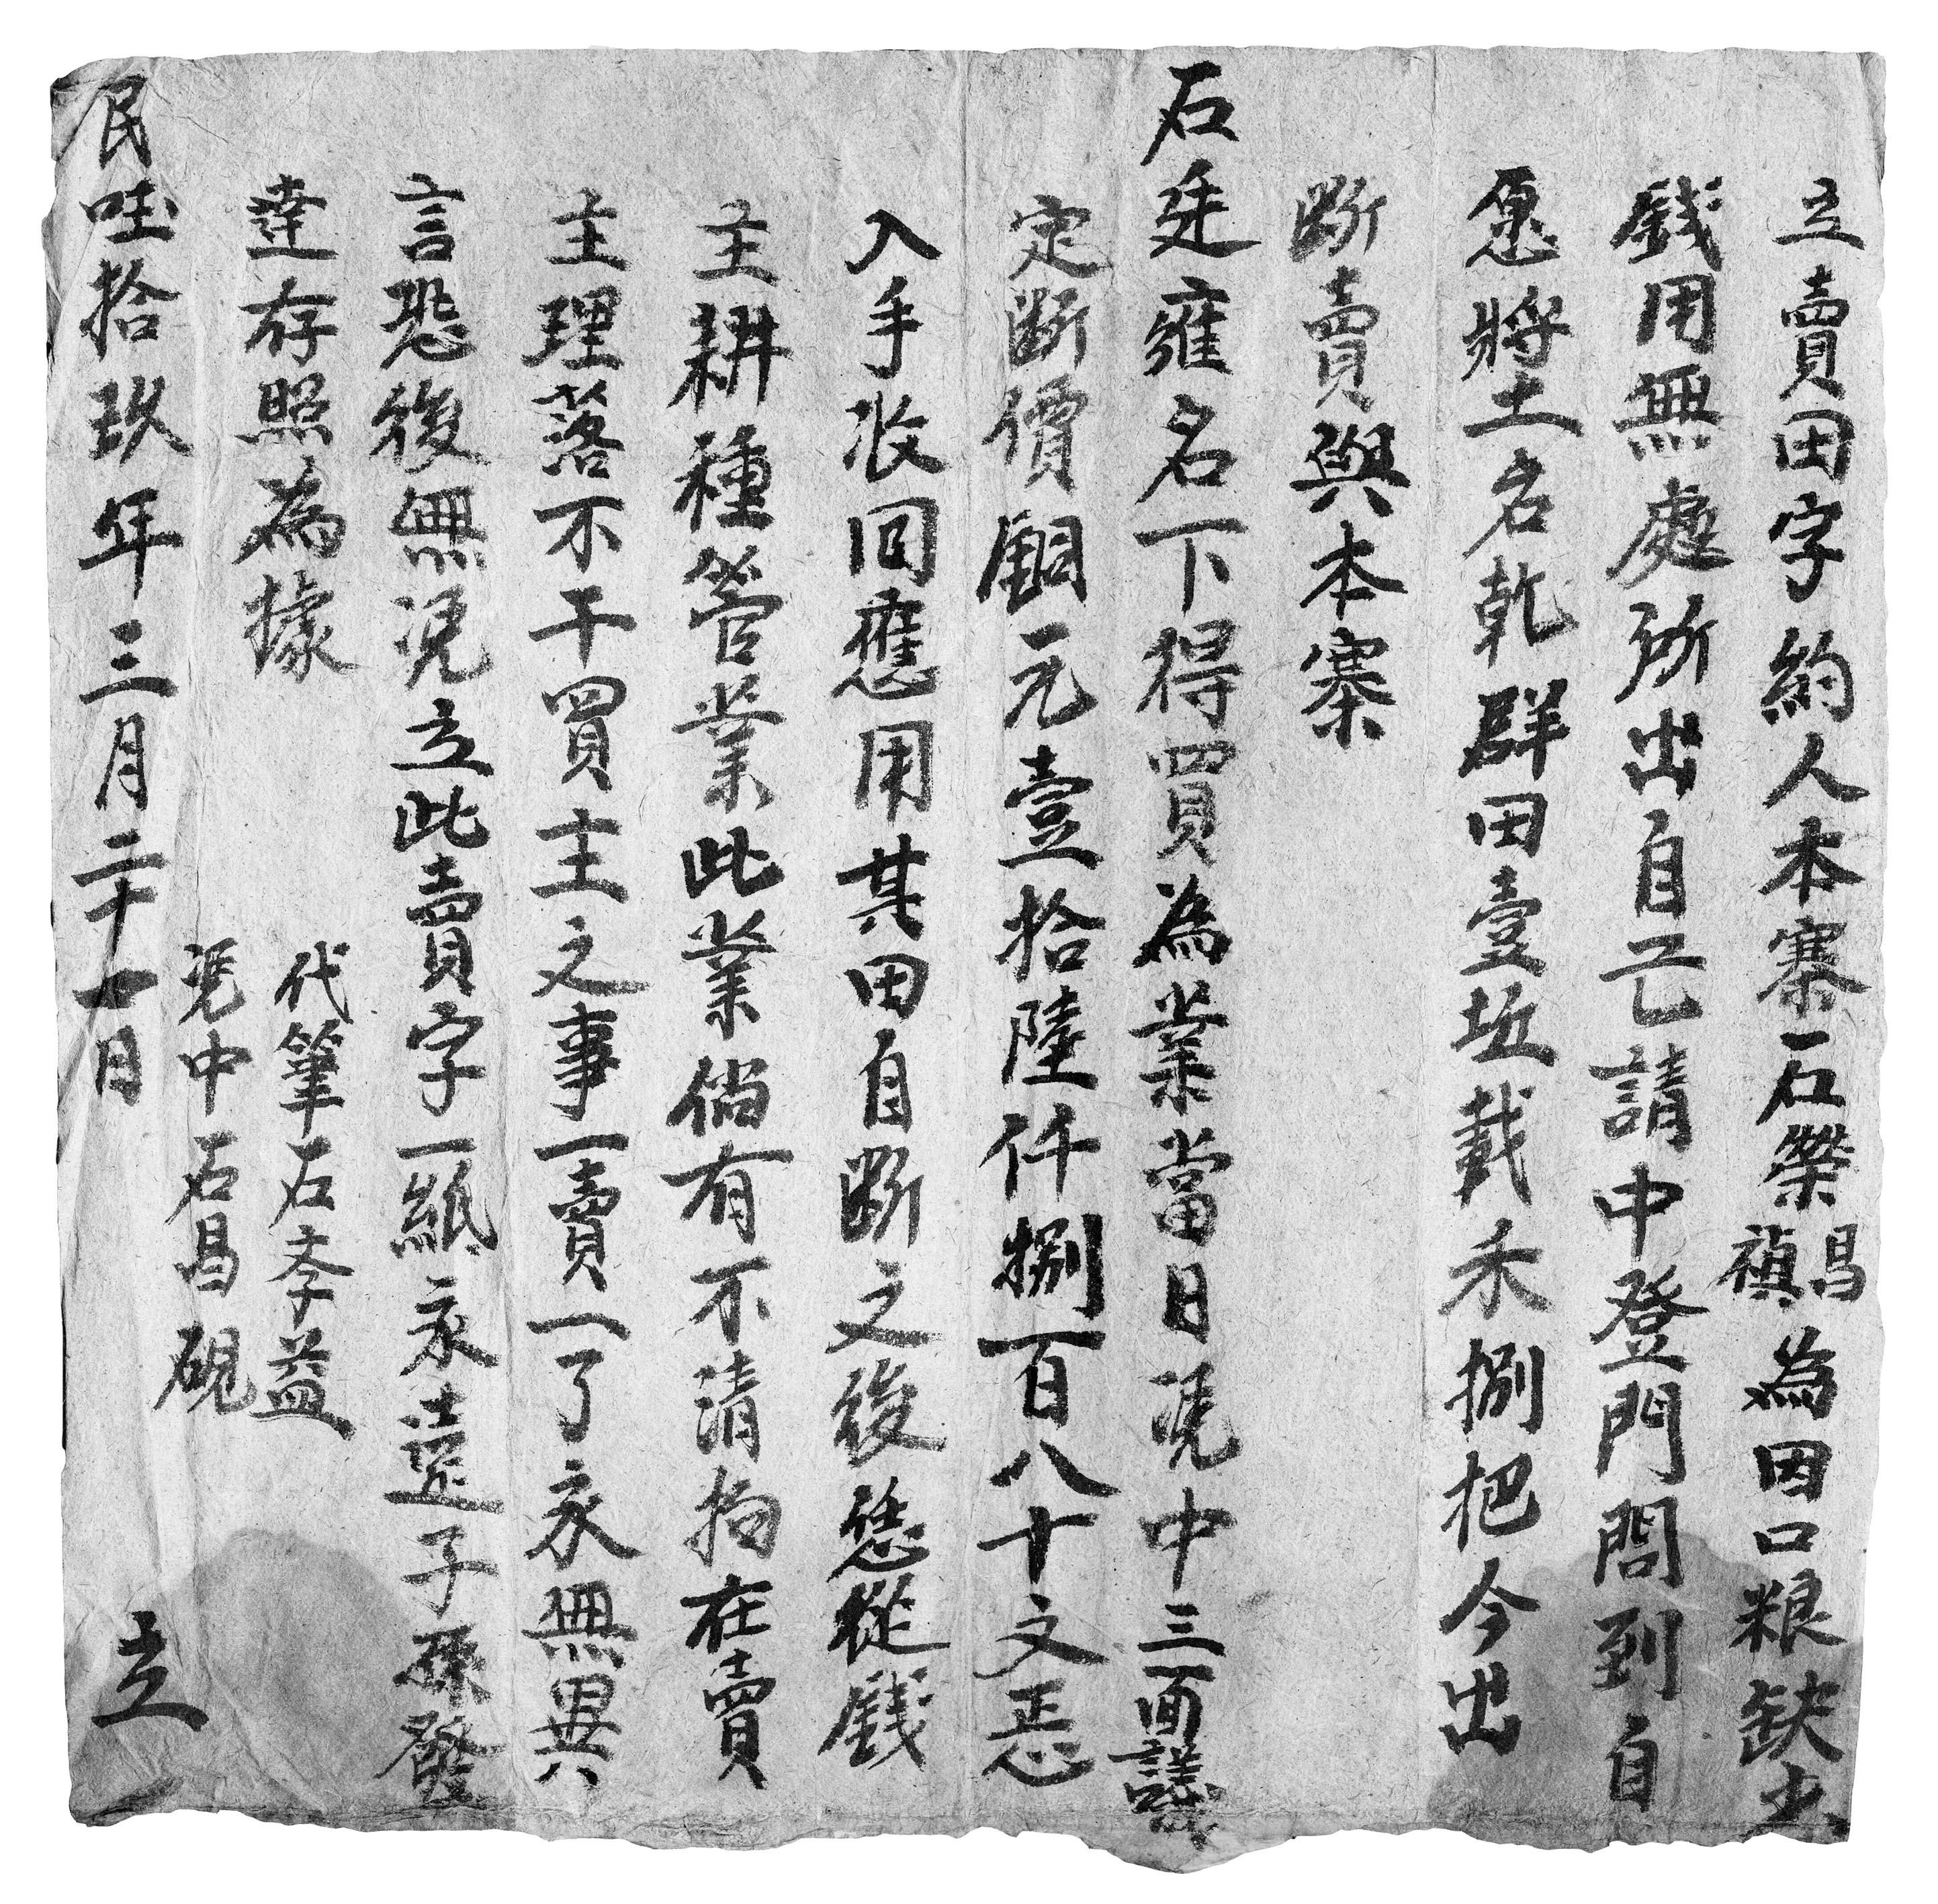 立賣田字約人本寨石榮昌禎為因口粮缺少
錢用無處所出自己請中登門問到自
愿將土名乾群田壹坵載禾捌把今出
断賣與本寨
石廷雍名下得買為業當日凴中三面議
定断價銅元壹拾陸仟捌百八十文恁
入手收回應用其田自断之後恁從錢
主耕種管業此業倘有不清拘在賣
主理落不干買主之事一賣一了永無異
言恐後無凴立此賣字一紙永遠子孫發
達存照為據
代筆石李益
凴中石昌硯
民國拾玖年三月二十一日 立